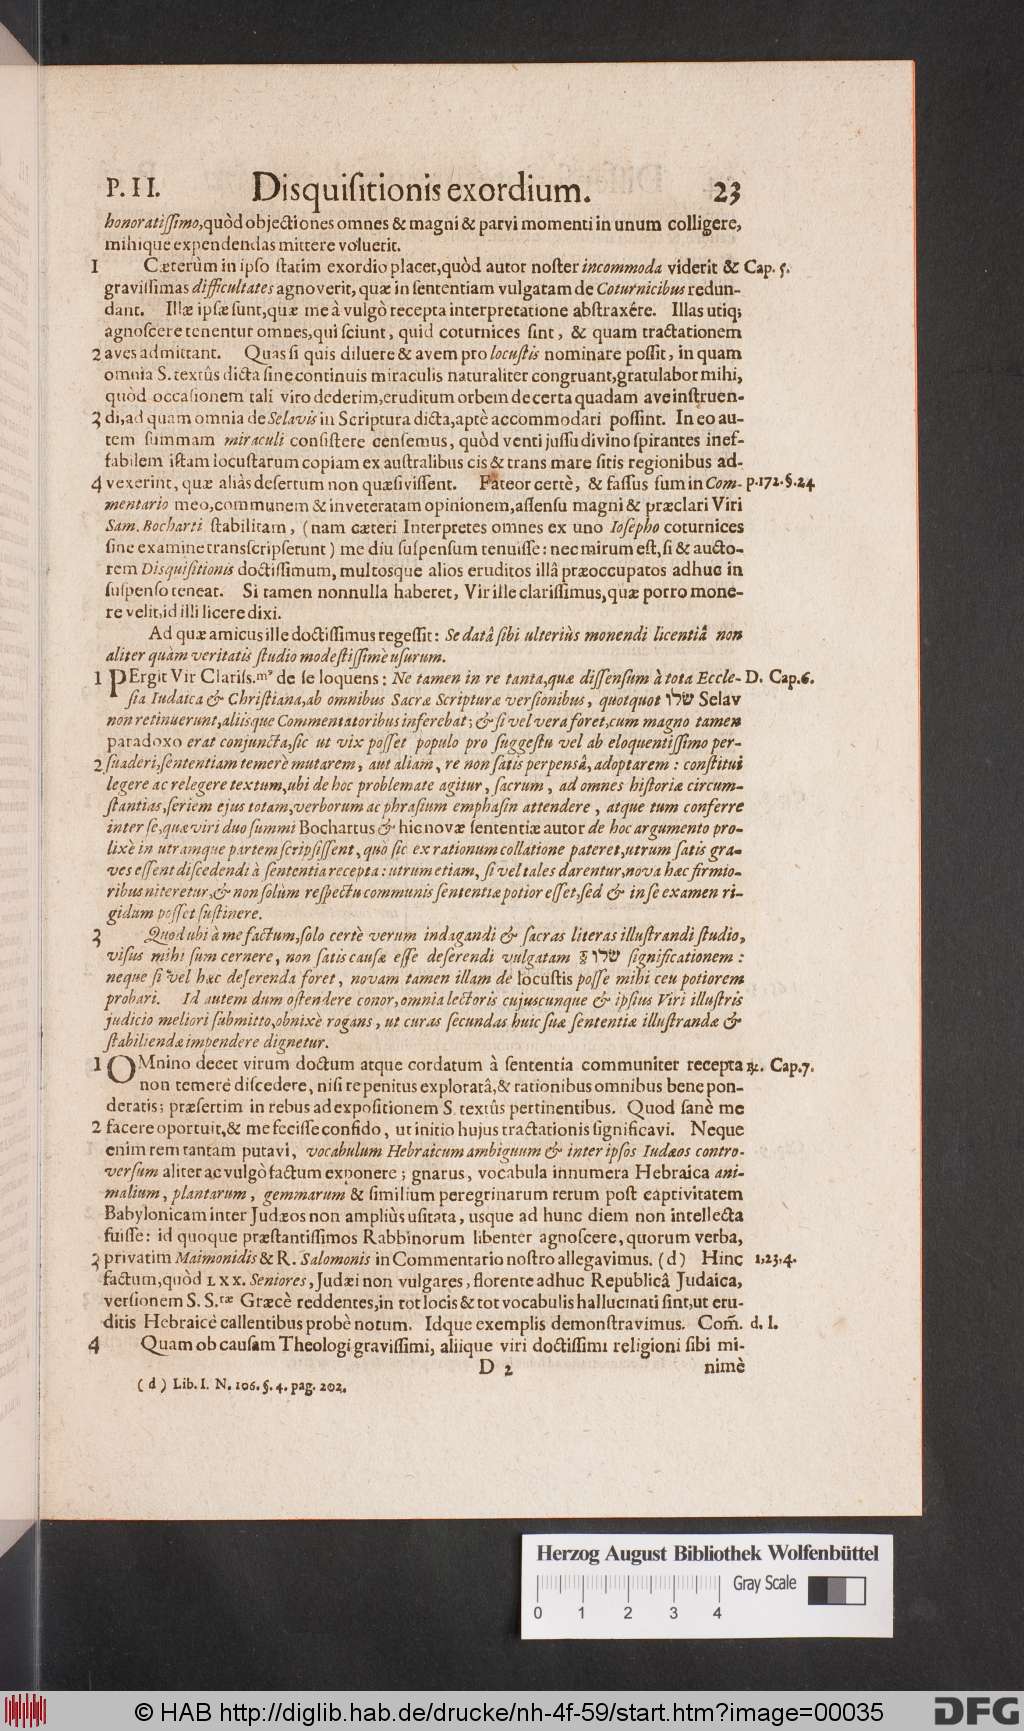 P. II. Disquiſitionis exordium. 23
honoratiſſimo, quòd objectiones omnes & magni & parvi momenti in unum colligere,
mihique expendendas mittere voluerit.
1 Cæterùm in ipſo ſtatim exordio placet, quòd autor noſter incommoda viderit & Cap. 5.
graviſſimas difficultates agnoverit, quæ in ſententiam vulgatam de Coturnicibus redun-
dant. Illæ ipſæ ſunt, quæ me à vulgò recepta interpretatione abſtraxére. Illas utiq;
agnoſcere tenentur omnes, qui ſciunt, quid coturnices ſint, & quam tractationem
2 aves admittant. Quas ſi quis diluere & avem pro locuſtis nominare poſſit, in quam
omnia S. textûs dicta ſine continuis miraculis naturaliter congruant, gratulabor mihi,
quòd occaſionem tali viro dederim, eruditum orbem de certa quadam ave inſtruen-
3 di, ad quam omnia de Selavis in Scriptura dicta, aptè accommodari poſſint. In eo au-
tem ſummam miraculi conſiſtere cenſemus, quòd venti juſſu divino ſpirantes inef-
fabilem iſtam locuſtarum copiam ex auſtralibus cis & trans mare ſitis regionibus ad-
4 vexerint, quæ aliàs deſertum non quæſiviſſent. Fateor certè, & faſſus ſum in Com- p. 172. §. 24
mentario meo, communem & inveteratam opinionem, aſſenſu magni & præclari Viri
Sam. Bocharti ſtabilitam, (nam cæteri Interpretes omnes ex uno Ioſepho coturnices
ſine examine tranſcripſerunt) me diu ſuſpenſum tenuiſſe: nec mirum eſt, ſi & aucto-
rem Disquiſitionis doctiſſimum, multosque alios eruditos illâ præoccupatos adhuc in
ſuſpenſo teneat. Si tamen nonnulla haberet, Vir ille clariſſimus, quæ porro mone-
re velit, id illi licere dixi.
Ad quæ amicus ille doctiſſimus regeſſit: Se datâ ſibi ulteriùs monendi licentiâ non
aliter quàm veritatis ſtudio modeſtiſſimè uſurum.
1 PErgit Vir Clariſs.mꝰ de ſe loquens: Ne tamen in re tanta, quæ diſſenſum à tota Eccle- D. Cap. 6.
ſia Iudaica & Chriſtiana, ab omnibus Sacræ Scripturæ verſionibus, quotquot שלו Selav
non retinuerunt, aliisque Commentatoribus inferebat; & ſi vel vera foret, cum magno tamen
paradoxo erat conjuncta, ſic ut vix poſſet populo pro ſuggeſtu vel ab eloquentiſſimo per-
2 ſuaderi, ſententiam temerè mutarem, aut aliam, re non ſatis perpensâ, adoptarem: conſtitui
legere ac relegere textum, ubi de hoc problemate agitur, ſacrum, ad omnes hiſtoriæ circum-
ſtantias, ſeriem ejus totam, verborum ac phraſium emphaſin attendere, atque tum conferre
inter ſe, quæ viri duo ſummi Bochartus & hic novæ ſententiæ autor de hoc argumento pro-
lixè in utramque partem ſcripſiſſent, quò ſic ex rationum collatione pateret, utrum ſatis gra-
ves eſſent diſcedendi à ſententia recepta: utrum etiam, ſi vel tales darentur, nova hæc firmio-
ribus niteretur, & non ſolùm reſpectu communis ſententiæ potior eſſet, ſed & in ſe examen ri-
gidum poſſet ſuſtinere.
3 Quod ubi à me factum, ſolo certè verum indagandi & ſacras literas illuſtrandi ſtudio,
viſus mihi ſum cernere, non ſatis cauſæ eſſe deſerendi vulgatam שלו ſignificationem:
neque ſi vel hæc deſerenda foret, novam tamen illam de locuſtis poſſe mihi ceu potiorem
probari. Id autem dum oſtendere conor, omnia lectoris cujuscunque & ipſius Viri illuſtris
judicio meliori ſubmitto, obnixè rogans, ut curas ſecundas huic ſuæ ſententiæ illuſtrandæ &
ſtabiliendæ impendere dignetur.
1 OMnino decet virum doctum atque cordatum à ſententia communiter recepta ꝶ. Cap. 7.
non temerè diſcedere, niſi re penitus exploratâ, & rationibus omnibus bene pon-
deratis; præſertim in rebus ad expoſitionem S. textûs pertinentibus. Quod ſanè me
2 facere oportuit, & me feciſſe confido, ut initio hujus tractationis ſignificavi. Neque
enim rem tantam putavi, vocabulum Hebraicum ambiguum & inter ipſos Iudæos contro-
verſum aliter ac vulgò factum exponere; gnarus, vocabula innumera Hebraica ani-
malium, plantarum, gemmarum & ſimilium peregrinarum rerum poſt captivitatem
Babylonicam inter Judæos non ampliùs uſitata, usque ad hunc diem non intellecta
fuiſſe: id quoque præſtantiſſimos Rabbinorum libenter agnoſcere, quorum verba,
3 privatim Maimonidis & R. Salomonis in Commentario noſtro allegavimus. (d) Hinc 1,23,4.
factum, quòd LXX. Seniores, Judæi non vulgares, florente adhuc Republicâ Judaica,
verſionem S. S.ræ Græcè reddentes, in tot locis & tot vocabulis hallucinati ſint, ut eru-
ditis Hebraicè callentibus probè notum. Idque exemplis demonſtravimus. Com̃. d. l.
4 Quam ob cauſam Theologi graviſſimi, aliique viri doctiſſimi religioni ſibi mi-
D 2 nimè
(d) Lib. I. N. 106. §. 4. pag. 202.
Herzog August Bibliothek Wolfenbüttel
Gray Scale
0 1 2 3 4
© HAB http://diglib.hab.de/drucke/nh-4f-59/start.htm?image=00035
DFG